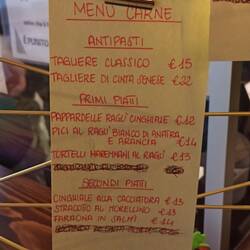 MENÙ CARNE
ANTIPASTI
TAGLIERE CLASSICO €15
TAGLIERE DI CINTA SENESE €22
PRIMI PIATTI
PAPPARDELLE RAGÙ CINGHIALE €12
PICI AL RAGU' BIANCO DI ANATRA
E ARANCIA €14
TORTELLI MAREMMANI AL RAGU' €13
SECONDI PIATTI
CINGHIALE ALLA CACCIATORA €13
STRACOTTO AL MORELLINO €13
FARAONA IN SALMÌ €14